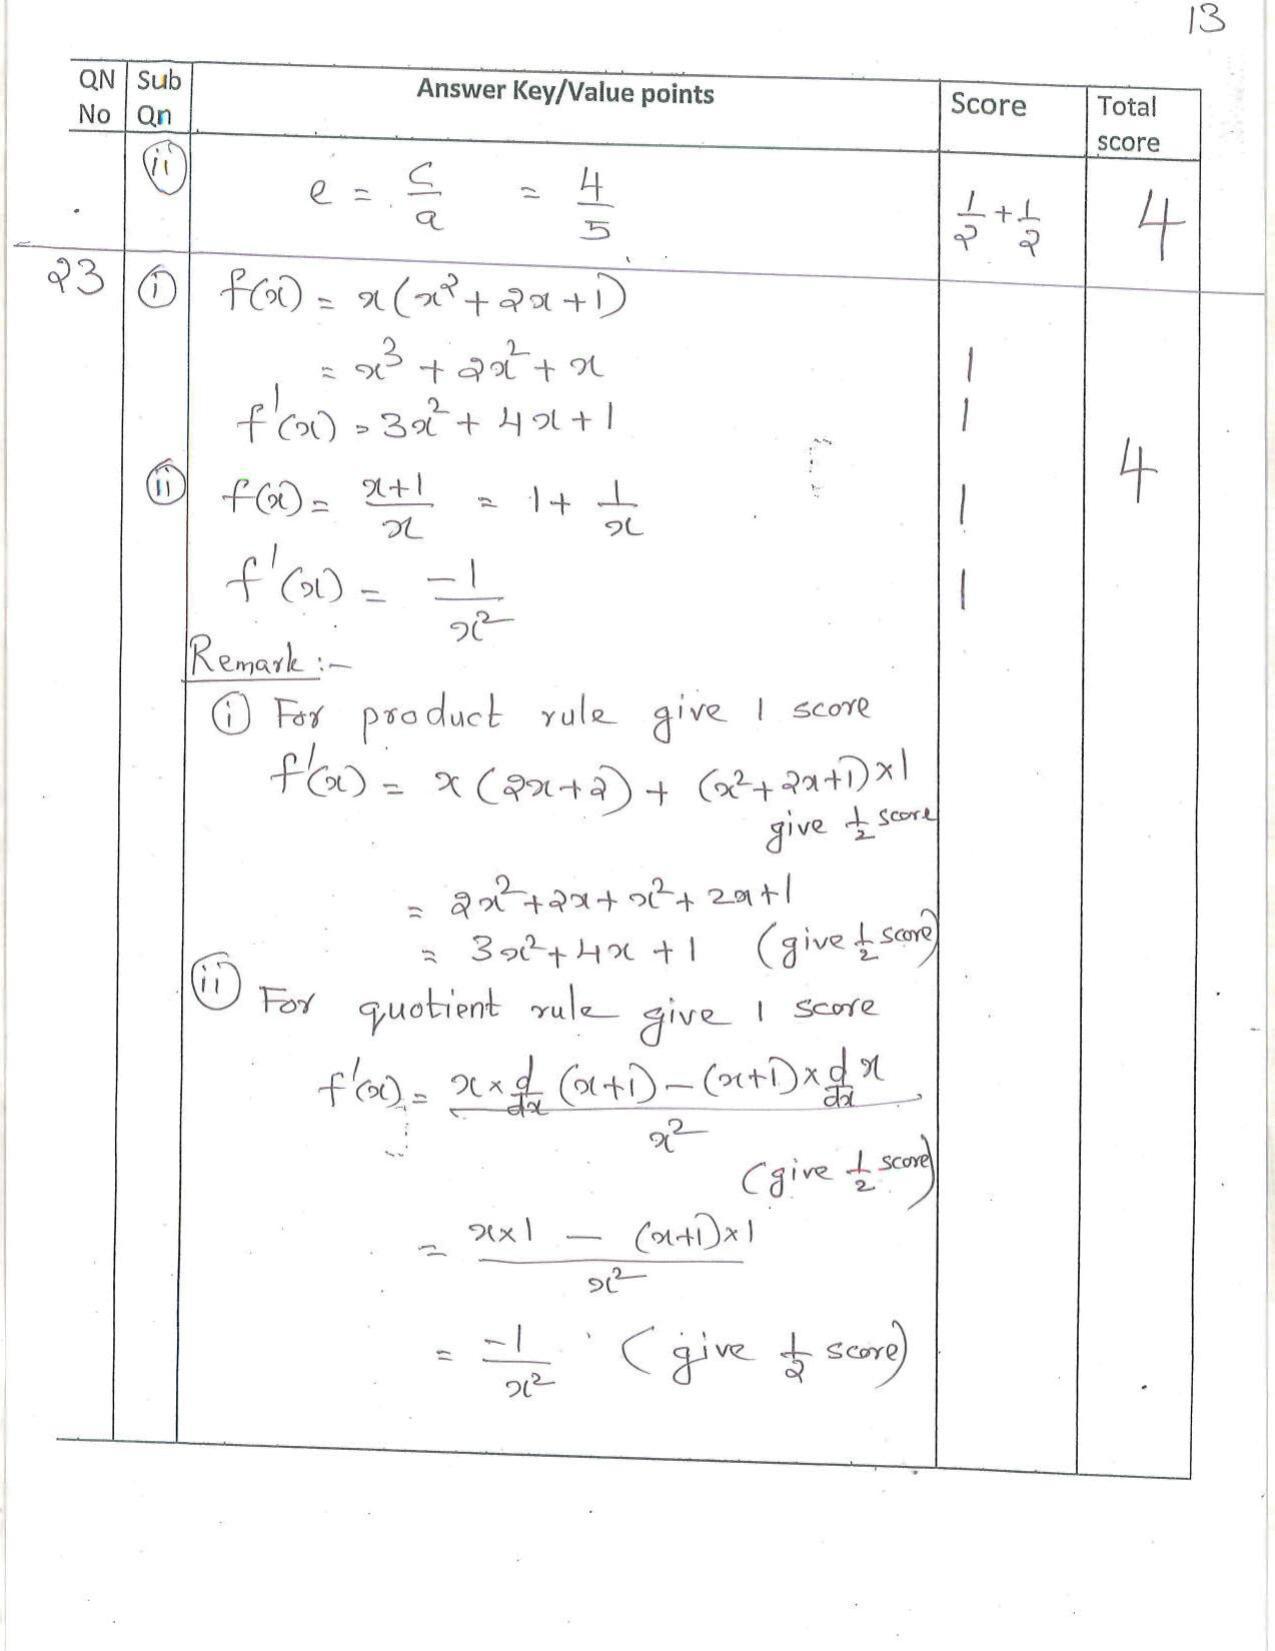 13
QN No Sub Qn Answer Key/Value points Score Total score
(ii) e = c/a = 4/5 1/2 + 1/2 4
23 (i) f(x) = x(x² + 2x + 1)
= x³ + 2x² + x 1
f'(x) = 3x² + 4x + 1 1
4
(ii) f(x) = x+1/x = 1 + 1/x 1
f'(x) = -1/x² 1
Remark :-
(i) For product rule give 1 score
f'(x) = x(2x+2) + (x²+2x+1)×1
give 1/2 score
= 2x²+2x+x²+2x+1
= 3x²+4x+1 (give 1/2 score)
(ii) For quotient rule give 1 score
f'(x) = x × d/dx (x+1) - (x+1) × d/dx x / x²
(give 1/2 score)
= x×1 - (x+1)×1 / x²
= -1/x² (give 1/2 score)